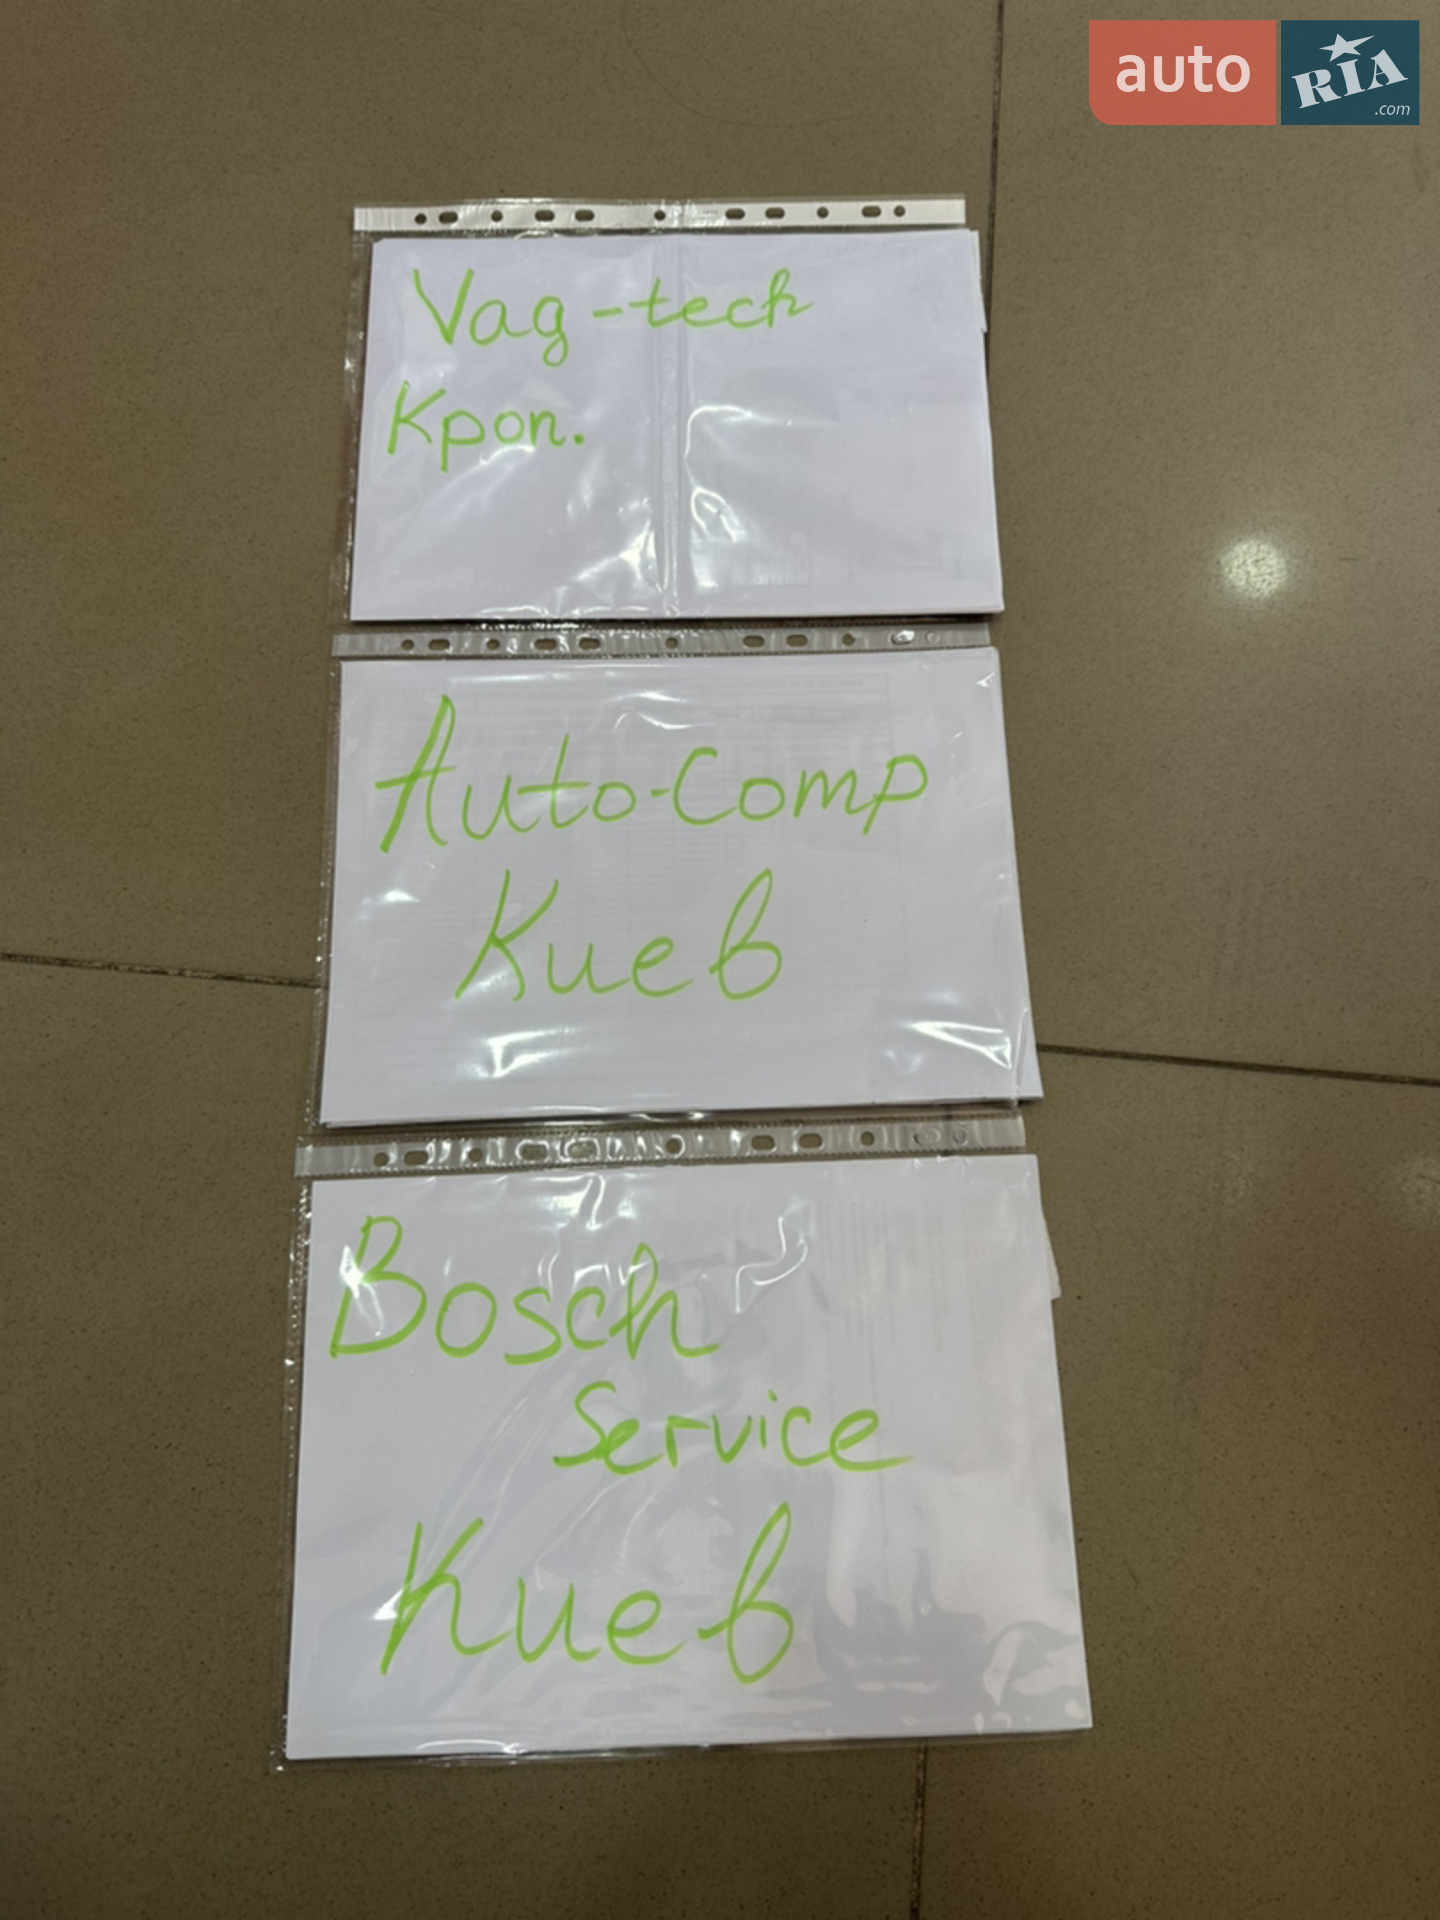 auto RIA
.com
Vag-tech
Кроп.
Auto-Comp
Киев
Bosch
Service
Киев